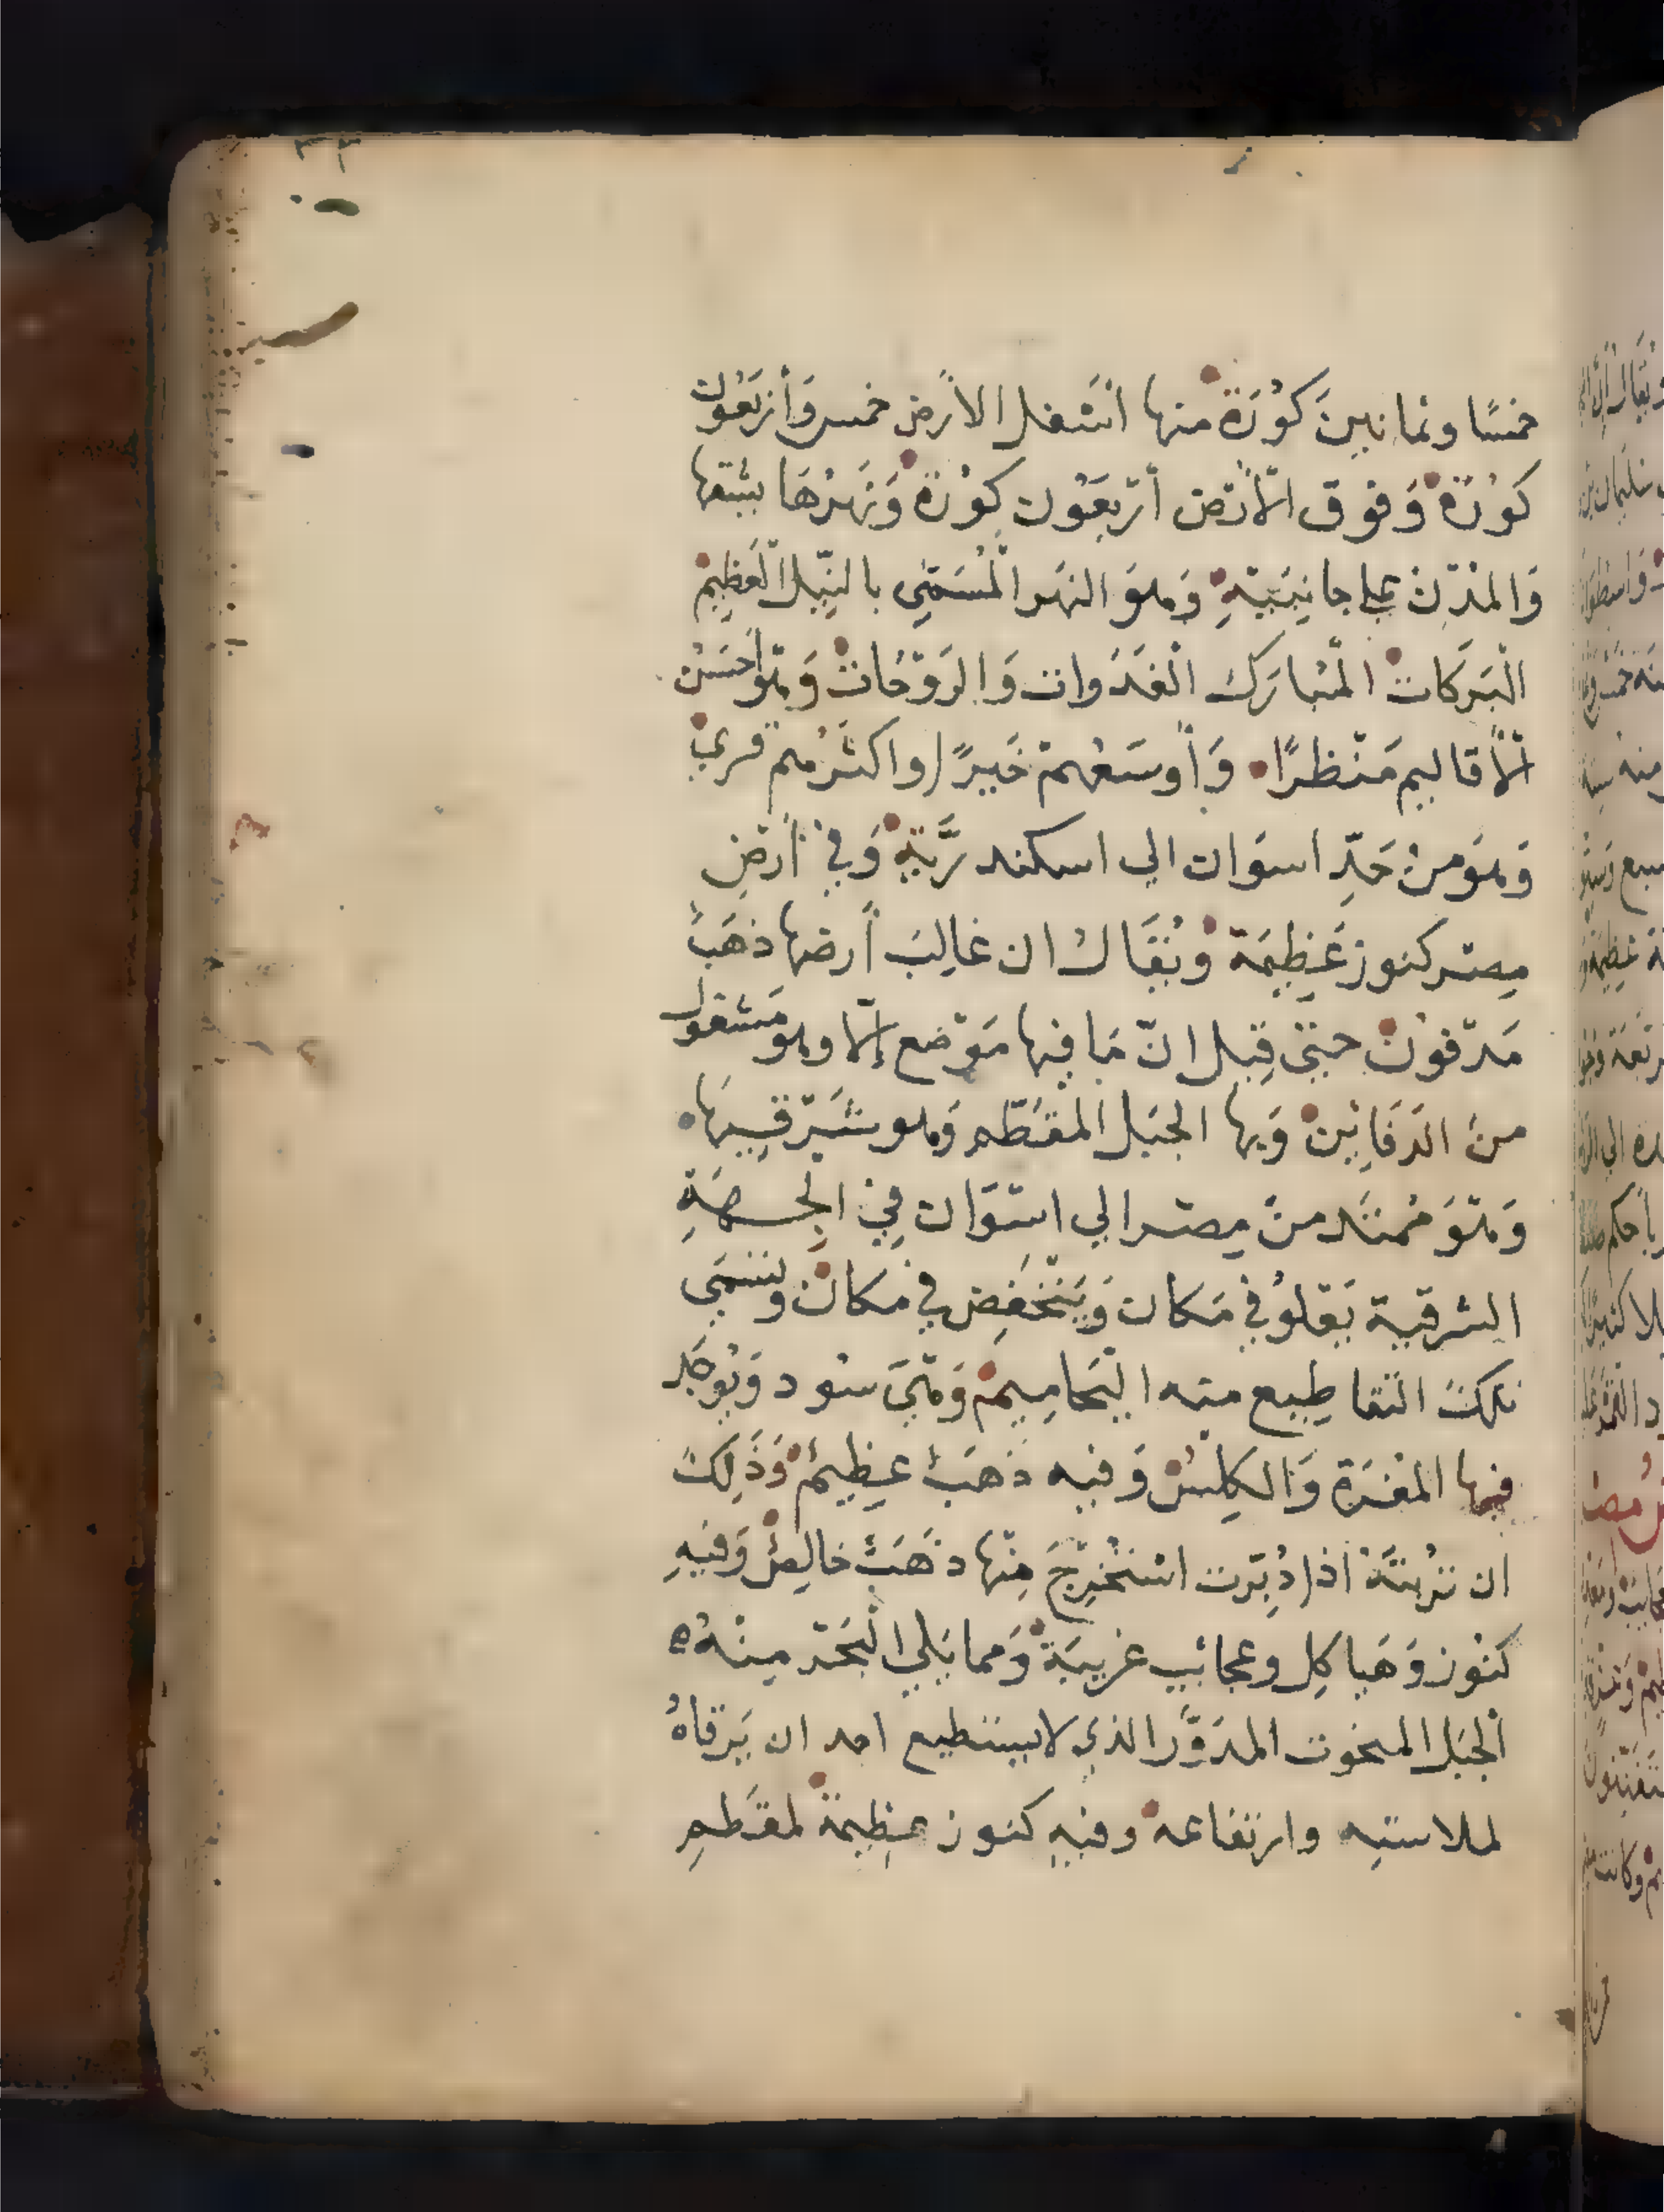 ٣٣
خمسًا وثمانينَ كُورَة منها اسْفل الأرض خمس وَأربَعُون
كورَة وَفوق الأرض أرْبَعُون كورَة وَنَهرُهَا يشقها
وَالمدُن على جانِبَيْهِ وَهوَ النهَر المُسَمّي بالنِّيل العَظِيم
البَركَات المُبارَك الغَدَوات وَالرَوْحَات وَهو أحسَن
الأقاليم مَنْظرًا وَأوسَعهمْ خَيرًا واكثرُهم قري
وَهوَ من حَدِّ اسوَان الي اسكندريَّةِ وَفي أرْضِ
مِصْر كنوز عَظِيمَة وَيُقَال ان غالِبَ أرضها ذهَبٌ
مَدْفونٌ حتي قِيل انّ مَا فيها مَوْضع إلّا وهو مَشغول
منَ الدَفَاين وَبها الجبَل المقطّم وَهو شَرْقيهَا
وَهوَ مُمتَد منْ مِصْر الي اسْوَان فِي الجهَةِ
الشرقية يَعْلوُ في مَكان وَيَنْخَفِض في مَكان وَتسَمي
تلكَ التقاطِيع منه اليَحامِيم وَهْيَ سُود وَيُوجَد
فيها المغرَة وَالكِلسُ وَفيه ذهَبٌ عظِيمٌ وَذَلِكَ
ان تربتَهُ اذا دُبّرت استُخرِجَ مِنْها ذهَبٌ خالِصٌ وَفيهِ
كنُوز وَهَياكِل وعجائب غريبَة وَمما يَلي البَحْر مِنْهُ ه
الجبَل المنحوت المدَوَّر الذي لا يستطيع احد ان يَرقاهُ
لملاستِه وارتفاعه وفيهِ كنوز عظِيمة لمقطم